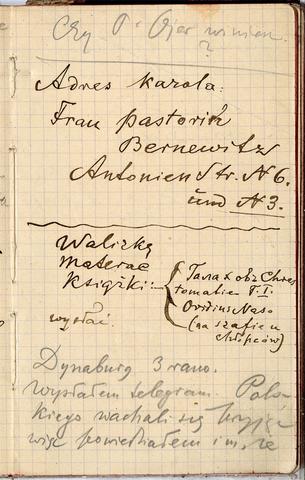 Czy P. Ojer winien
?
Adres Karola:
Frau Pastorin
Bernewitz
Antonien Str. № 6.
und № 3.
Walizkę
materac
Książki:
Талахова Chres
tomatie T. I.
Ovidius Naso
(na szafie u
chłopców)
wysłać.
Dynaburg 3 rano.
wysłałem telegram. Pols-
kiego wachali się
więc powiedziałem im, że